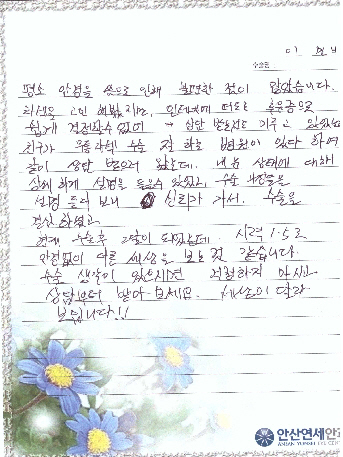 수술명
이 님
평소 안경을 씀으로 인해 불편한 점이 많았습니다.
라식을 고민 해봤지만, 인터넷에 떠도는 소문으로
쉽게 결정할수 없어 → 상담 받는것도 미루고 있었는데
친구가 수술 잘 하는 병원이 있다 하여
같이 상담 받으러 왔는데. 내 눈 상태에 대해
상세하게 설명을 들을수 있었고, 수술 과정을
설명 듣다 보니 신뢰가 가서. 수술을
결심 하였고
현재 수술후 2일이 되었는데. 시력 1.5로
안경없이 다른 세상을 보는 것 같습니다.
수술 생각이 있으시면 걱정하지 마시고
상담부터 받아 보세요. 세상이 달라
보입니다!!
안산연세안과
ANSAN YONSEI EYE CENTER